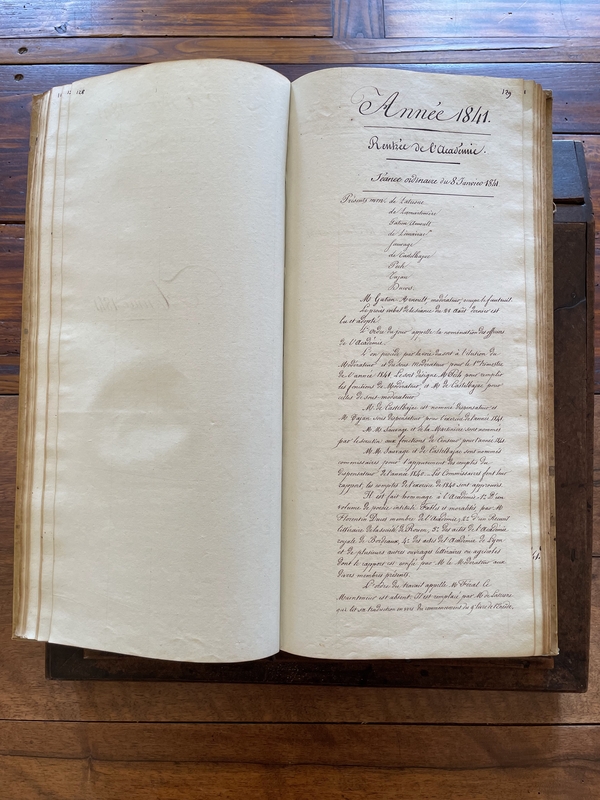 128
129
Année 1841.
Rentrée de l'Académie.
Séance ordinaire du 8 Janvier 1841.
Présents mm. de
de Lamartinière
de
Sauvage
de Castelbajac
Pech
Dajan
Ducos.
M Hénault modérateur, occupe le fauteuil.
Le procès verbal de la séance du Août dernier est
lu et adopté.
L'ordre du jour appelle la nomination des officiers
de l'Académie.
L'on procède par la voie du sort à l'élection du
Modérateur et du sous modérateur pour le 1er trimestre
de l'année 1841. Le sort désigne M. Pech pour remplir
les fonctions de Modérateur, et M. de Castelbajac pour
celles de sous-modérateur.
M. de Castelbajac est nommé dispensateur et
M. Dajan, sous dispensateur pour l'exercice de l'année 1841.
M.M. Sauvage et de la Martinière sont nommés
par le scrutin aux fonctions de Censeur pour l'année 1841
M.M. Sauvage et de Castelbajac sont nommés
commissaires pour l'apurement des comptes du
dispensateur de l'année 1840. Les Commissaires font leur
rapport, les comptes de l'exercice de 1840 sont approuvés.
Il est fait hommage à l'Académie 1.° d'un
volume de poésie intitulé Fables et moralités par M
Florentin Ducos membre de l'Académie, 2.° d'un Recueil
littéraire de la société de Rouen, 3.° des actes de l'Académie
royale de Bordeaux, 4.° des actes de l'Académie de Lyon
et de plusieurs autres ouvrages littéraires ou agricoles
dont le rapport est confié par M. le Modérateur aux
divers membres présents.
L'ordre du travail appelle M. Féral. Ce
Mainteneur est absent. Il est remplacé par M. de
qui lit sa traduction en vers du commencement du 9e livre de l'Enéide,